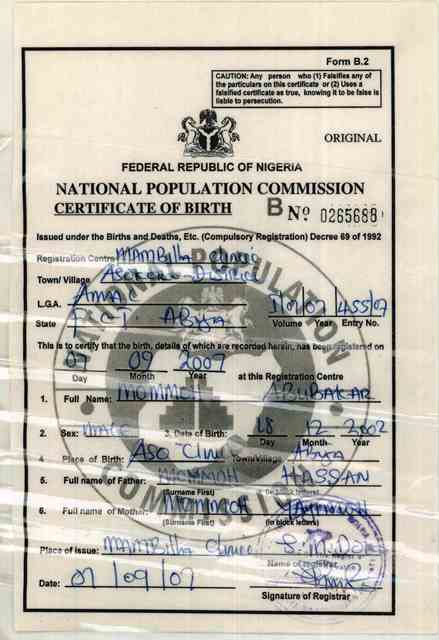 Form B.2
CAUTION: Any person who (1) Falsifies any of
the particulars on this certificate or (2) Uses a
falsified certificate as true, knowing it to be false is
liable to persecution.
ORIGINAL
FEDERAL REPUBLIC OF NIGERIA
NATIONAL POPULATION COMMISSION
CERTIFICATE OF BIRTH B No 0265688
Issued under the Births and Deaths, Etc. (Compulsory Registration) Decree 69 of 1992
Registration Centre MAMBilla Clinic
Town/ Village Asokoro District
L.G.A. AMAC
State F.C.T. Abuja Volume Year Entry No.
07 455/07
This is to certify that the birth, details of which are recorded herein, has been registered on
07 09 2007
Day Month Year at this Registration Centre
1. Full Name: MOMMOH ABUBAKAR
2. Sex: MALE 3. Date of Birth: 18 12 2002
Day Month Year
4 Place of Birth: ASO Clinic Town/Village Abuja
5. Full name of Father: MOMMOH HASSAN
(Surname First) (In block letters)
6. Full name of Mother: MOMMOH
(Surname First) (In block letters)
Place of issue: MAMBilla Clinic S. M.
Name of registrar
Date: 07/09/07
Signature of Registrar
NATIONAL POPULATION COMMISSION